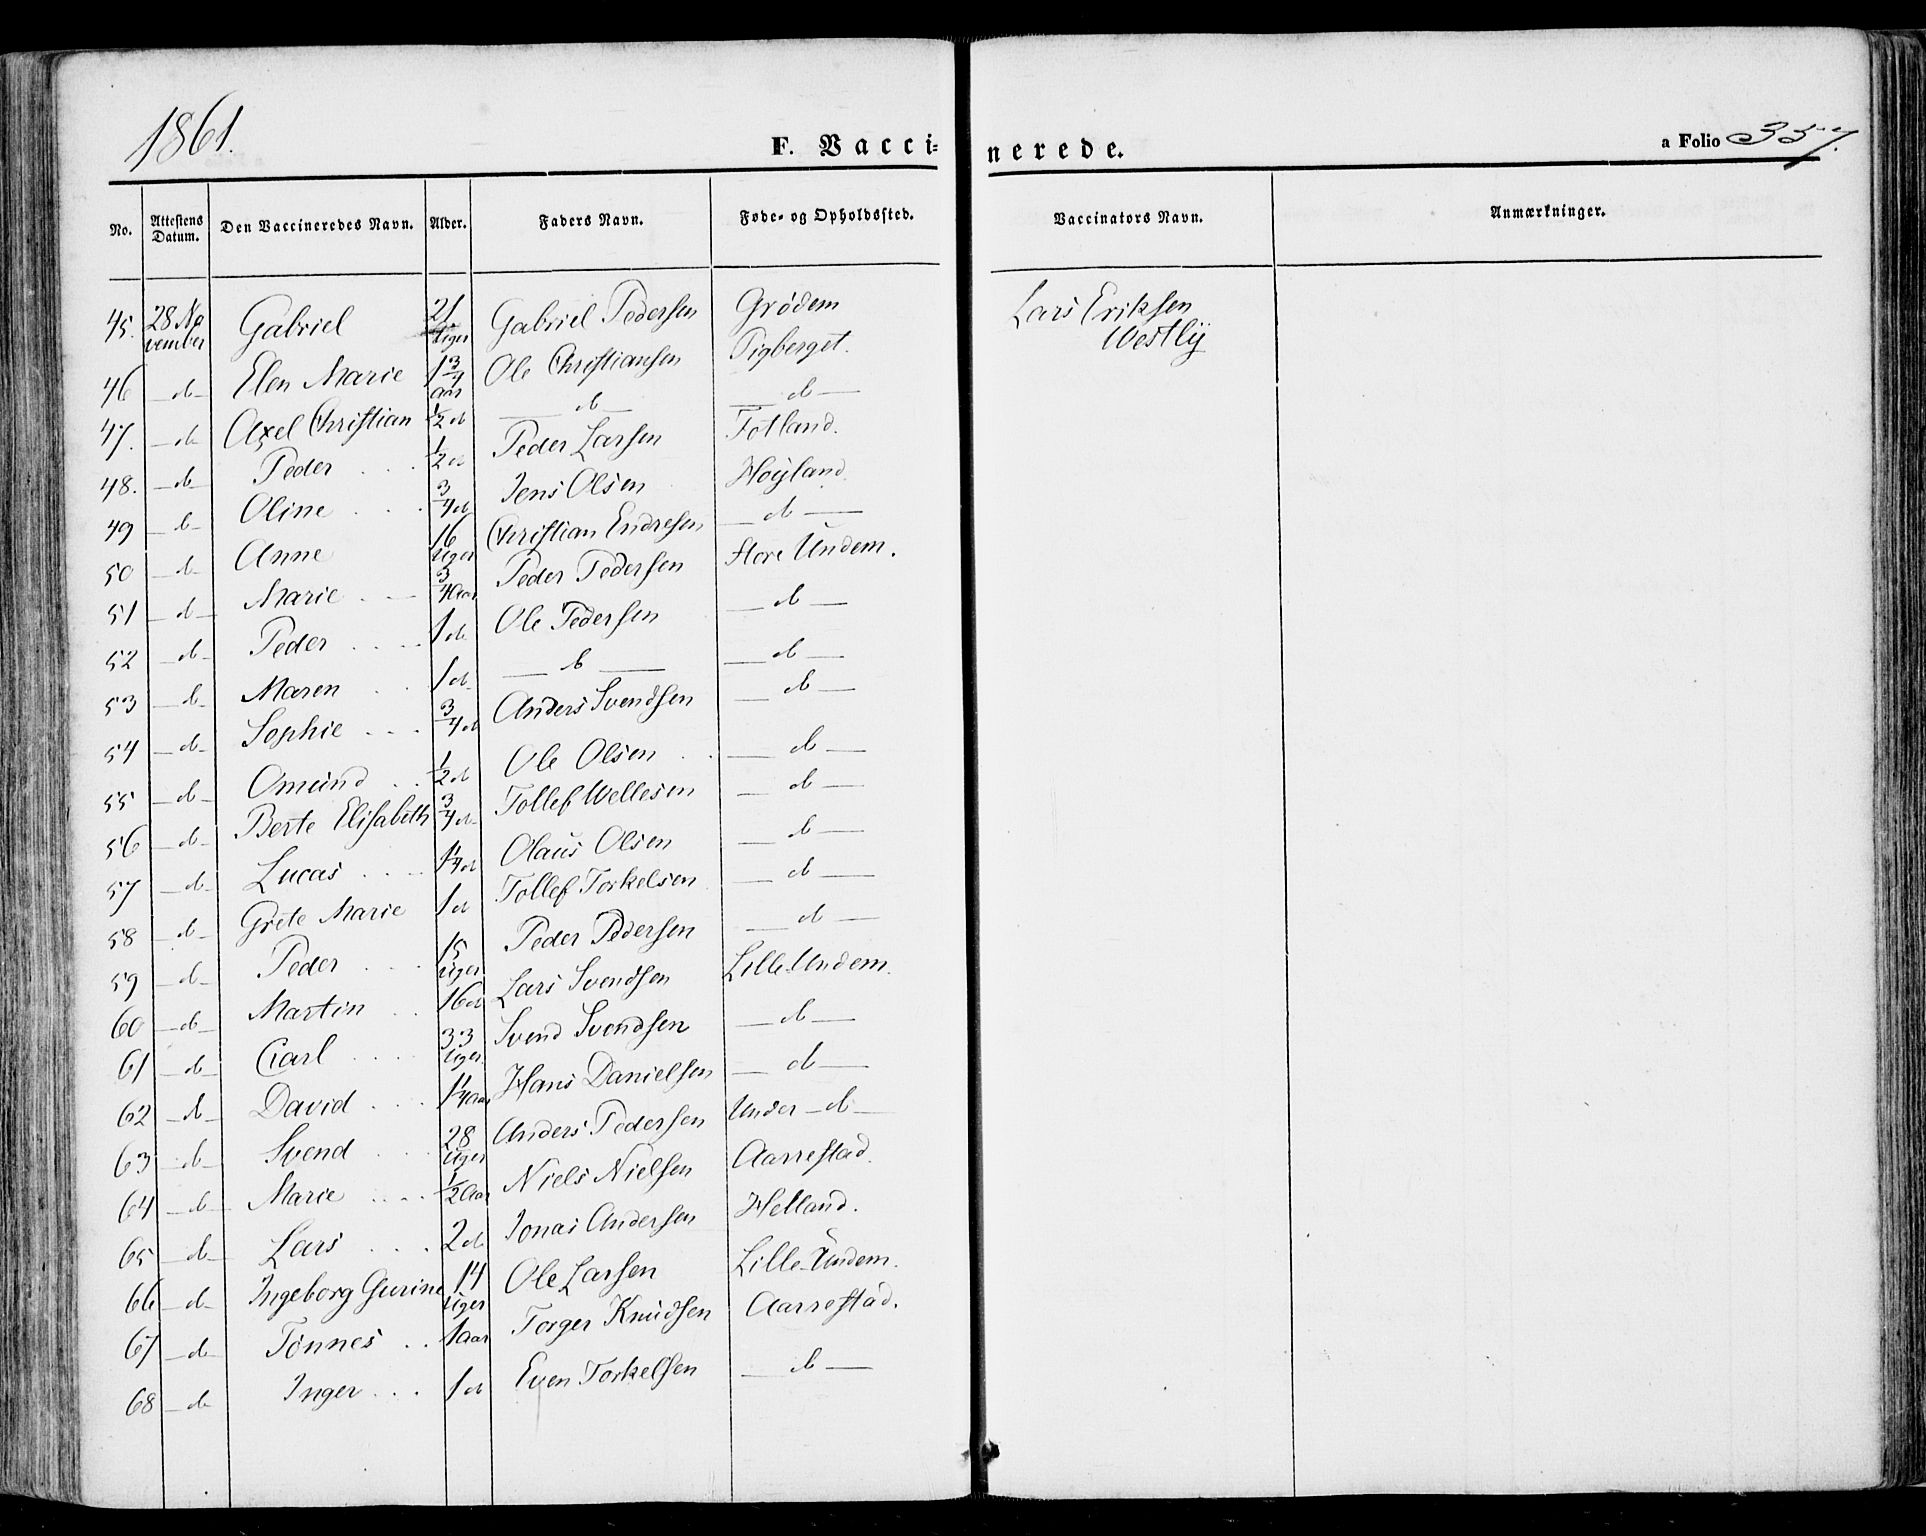 1861.
F. Vacci-
nerede.
a Folio 357.
No. | Attestens Datum. | Den Vaccineredes Navn. | Alder. | Faders Navn. | Føde- og Opholdssted. | Vaccinators Navn. | Anmærkninger.
45. | 28 November | Gabriel | 21 Uger | Gabriel Pedersen | Grödem | Lars Eriksen Westly
46 | — d — | Elen Marie | 1 3/4 aar | Ole Christiansen | Pigberget.
47. | — d — | Axel Christian | 1/2 d | — d — | — d —
48. | — d — | Peder | 1/2 d | Peder Larsen | Fotland.
49 | — d — | Oline | 3/4 d | Jens Olsen | Høyland.
50 | — d — | Anne | 16 Uger | Christian Endresen | — d —
51 | — d — | Marie | 3/4 Aar | Peder Pedersen | Store Undem.
52 | — d — | Peder | 1 d | Ole Pedersen | — d —
53 | — d — | Maren | 1 d | — d — | — d —
54 | — d — | Sophie | 3/4 d | Anders Svendsen | — d —
55 | — d — | Omund | 1/2 d | Ole Olsen | — d —
56 | — d — | Berte Elisabeth | 3/4 d | Tollef Wellesen | — d —
57 | — d — | Lucas | 1 1/4 d | Olaus Olsen | — d —
58 | — d — | Grete Marie | 1 d | Tollef Torkelsen | — d —
59 | — d — | Peder | 15 Uger | Peder Pedersen | — d —
60 | — d — | Martin | 16 d | Lars Svendsen | Lille-Undem.
61 | — d — | Carl | 33 Uger. | Svend Svendsen | — d —
62 | — d — | David | 1 1/4 aar | Hans Danielsen | — d —
63 | — d — | Svend | 28 Uger | Anders Pedersen | Under — d —
64 | — d — | Marie | 1/2 Aar | Niels Nielsen | Aarrestad.
65 | — d — | Lars | 2 d | Jonas Andersen | Helland.
66 | — d — | Ingeborg Gurine | 14 Uger | Ole Larsen | Lille-Undem.
67 | — d — | Tönnes | 1 aar | Torger Knudsen | Aarrestad.
68 | — d — | Inger | 1 d | Even Torkelsen | — d —